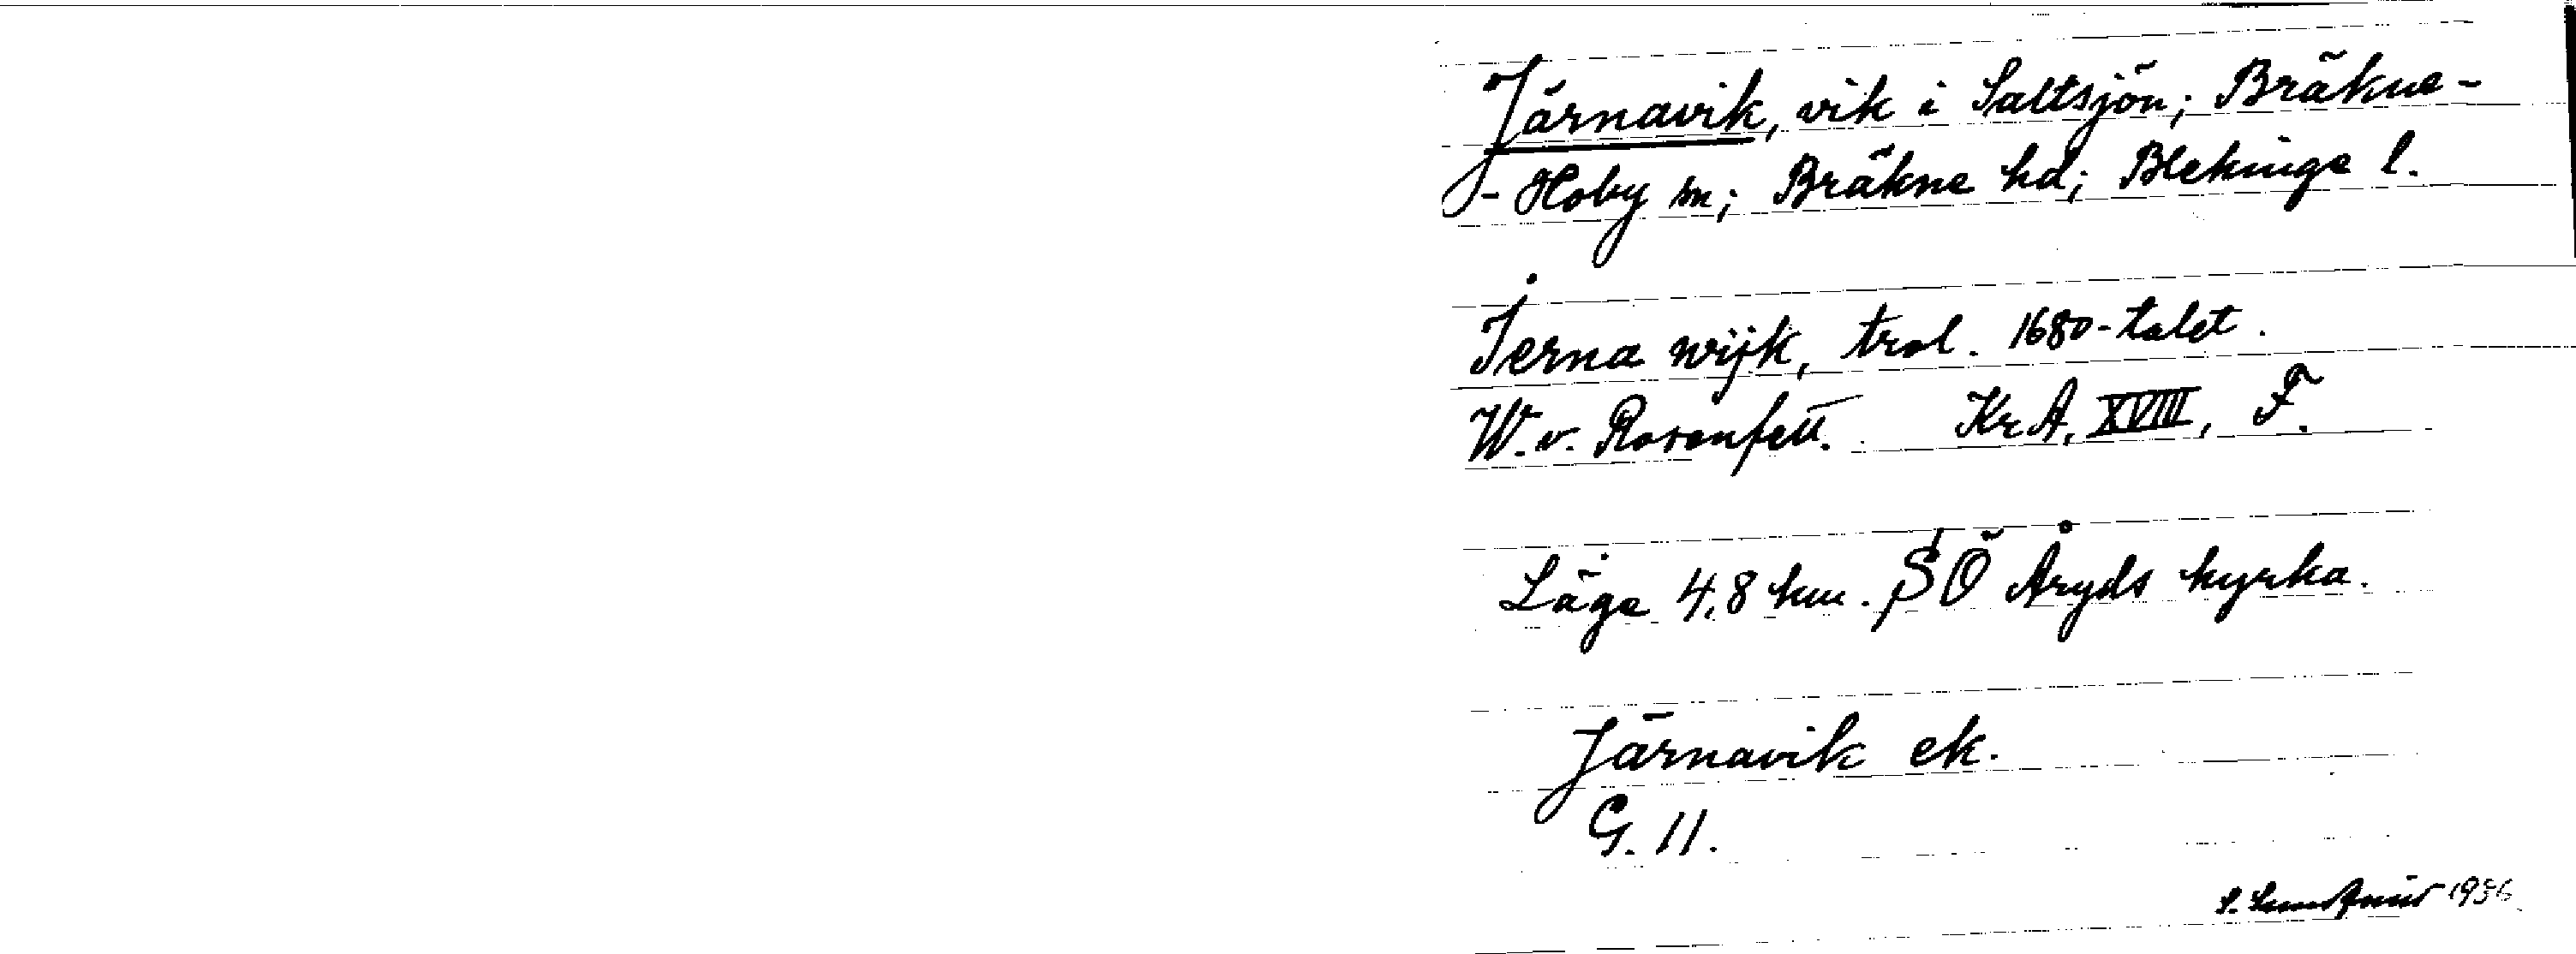 Järnavik, vik i Saltsjön; Bräkne-
-Hoby sn; Bräkne hd; Blekinge l.
Jerna wijk, trol. 1680-talet.
W.v. Rosenfelt. KrA, XVIII, F.
Läge 4,8 km. SÖ Åryds kyrka.
Järnavik ek.
G. 11.
1936